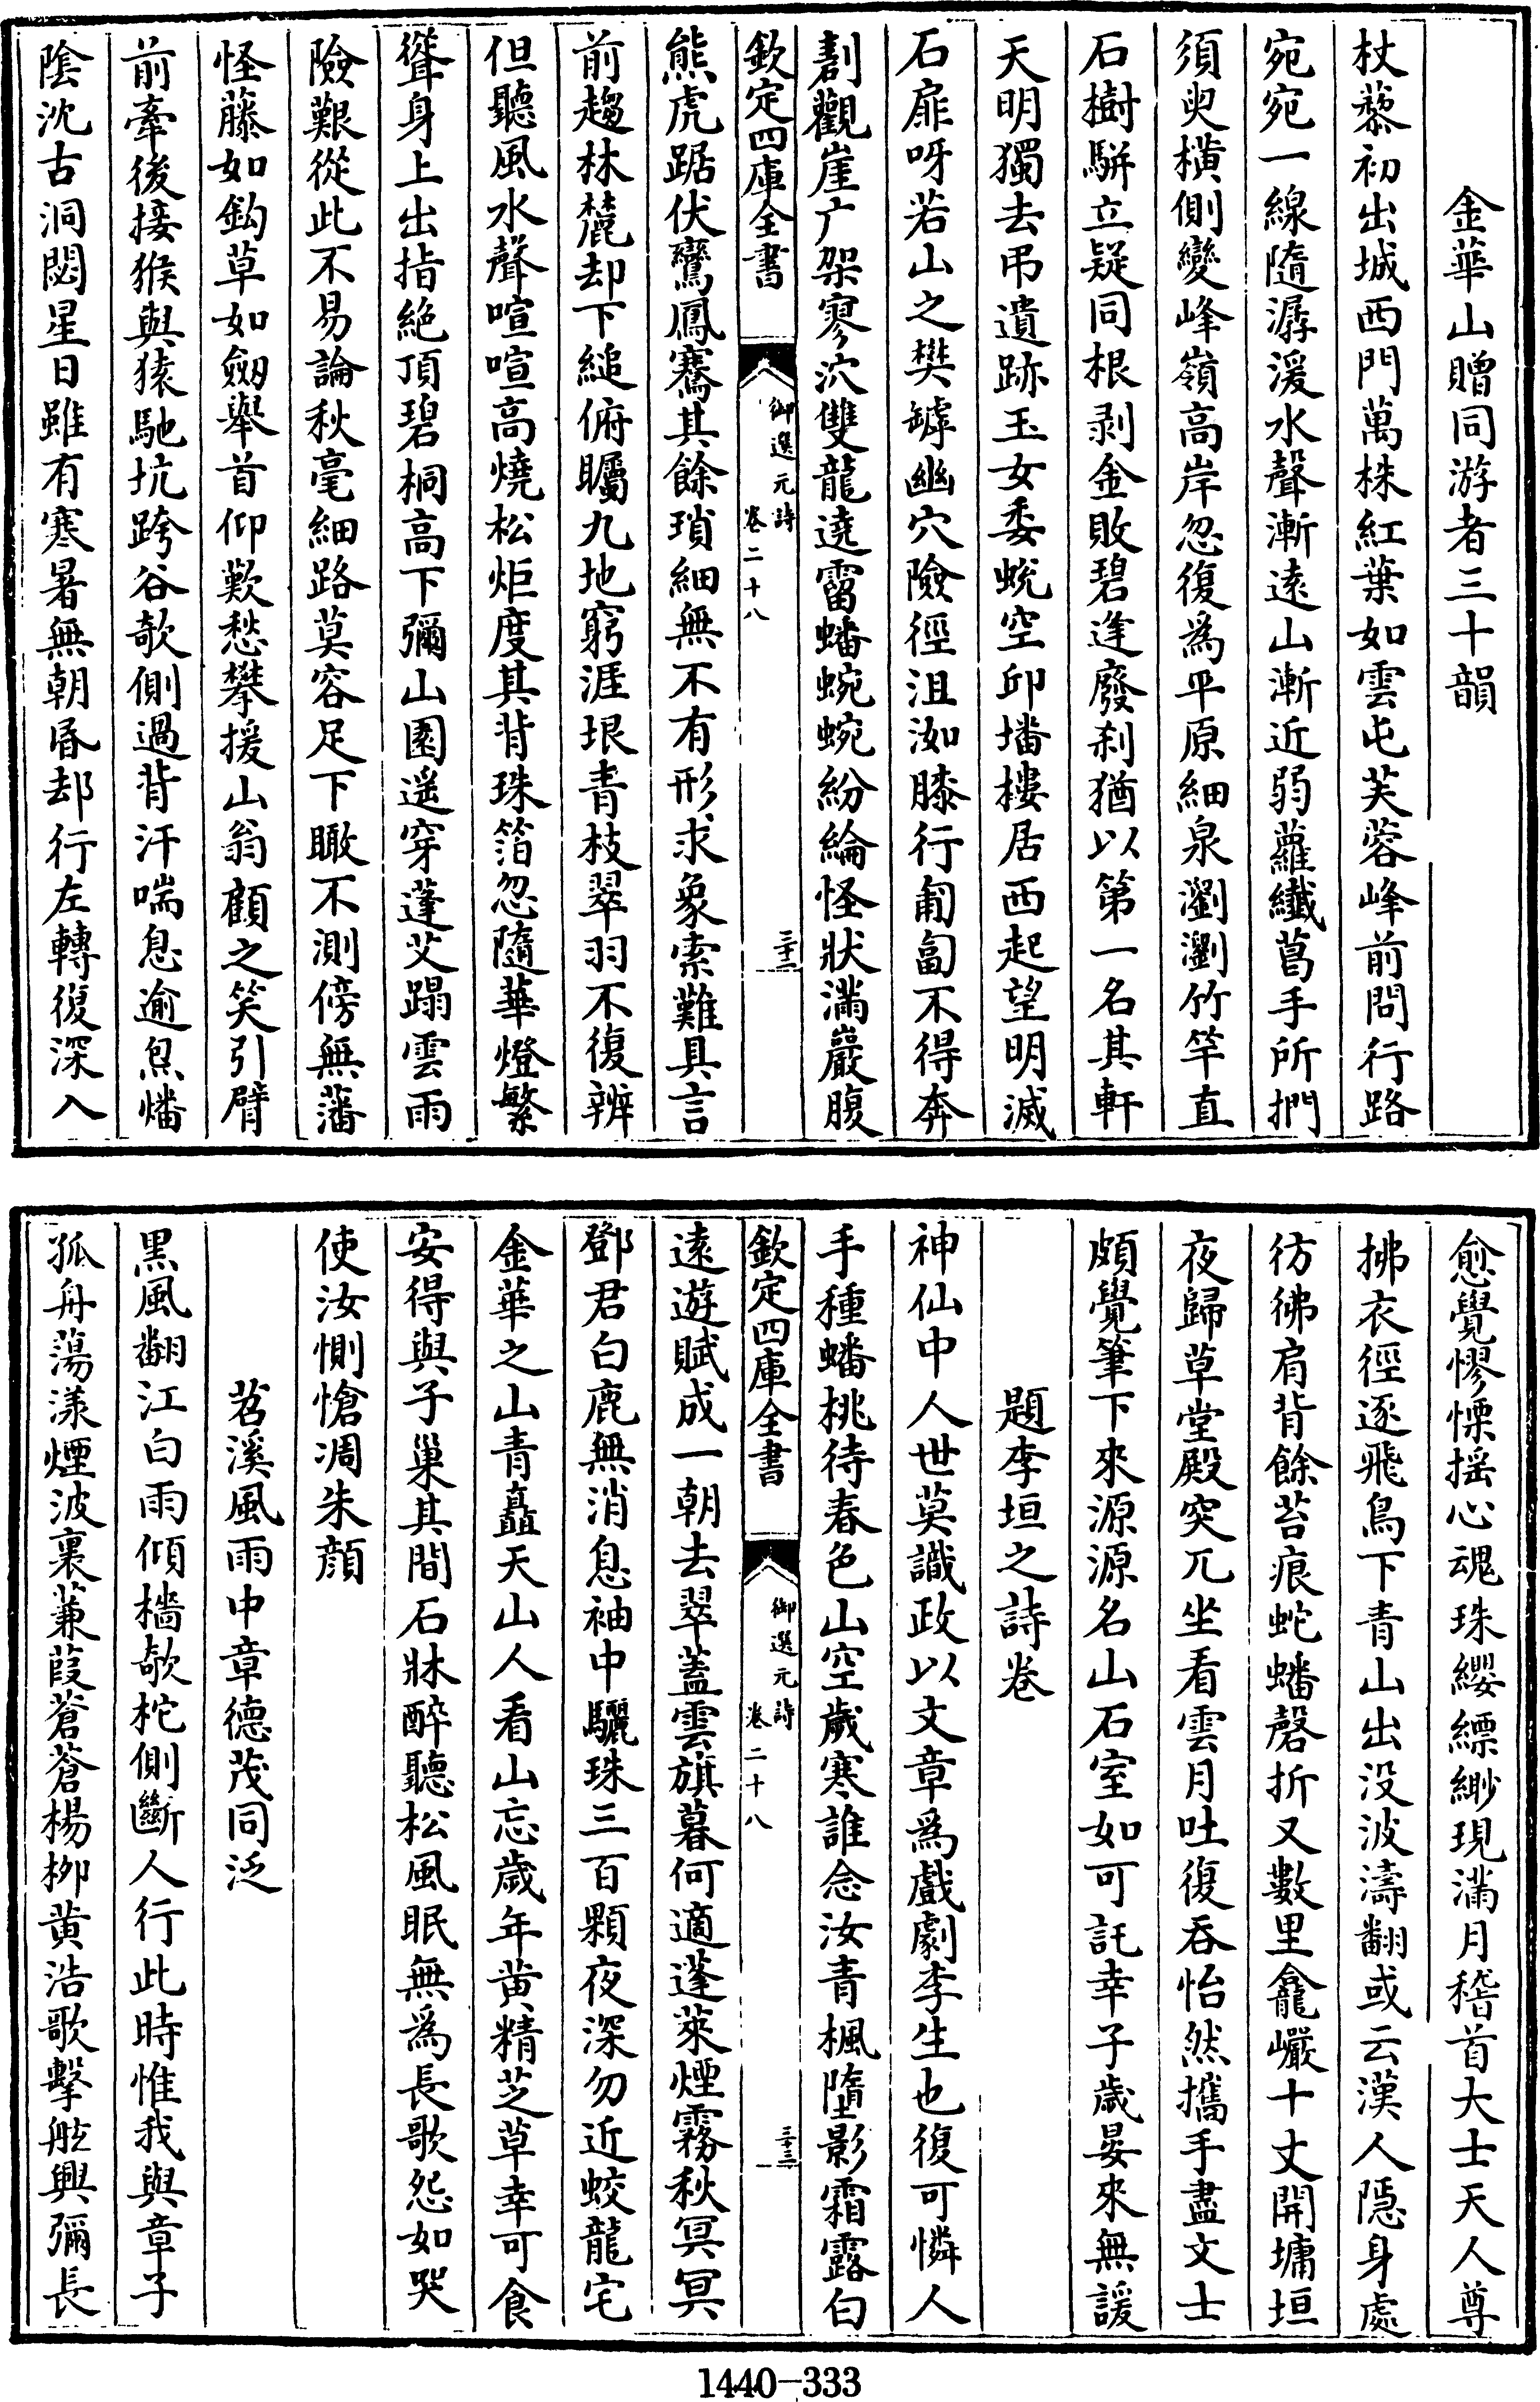 金華山贈同游者三十韻
杖藜初出城西門萬株紅葉如雲屯芙蓉峰前問行路
宛宛一線隨潺湲水聲漸遠山漸近弱蘿纖葛手所捫
須臾橫側變峰嶺高岸忽復爲平原細泉瀏瀏竹竿直
石樹駢立疑同根剥金敗碧逢廢刹猶以第一名其軒
天明獨去弔遺跡玉女委蛻空卭墦樓居西起望明滅
石扉呀若山之樊罅幽穴險徑沮洳膝行匍匐不得奔
劃觀崖广架寥泬雙龍遶霤蟠蜿蜿紛綸怪狀滿巖腹
欽定四庫全書
御選元詩
卷二十八
三十二
熊虎踞伏鸞鳳騫其餘瑣細無不有形求象索難具言
前趨林麓却下縋俯矚九地窮涯垠青枝翠羽不復辨
但聽風水聲喧喧高燒松炬度其背珠箔忽隨華燈繁
聳身上出指絶頂碧桐高下彌山園遥穿蓬艾蹋雲雨
險艱從此不易論秋毫細路莫容足下瞰不測傍無藩
怪藤如鈎草如劒舉首仰歎愁攀援山翁顧之笑引臂
前牽後接猴與猿馳坑跨谷欹側過背汗喘息逾炰燔
陰沈古洞閟星日雖有寒暑無朝昏却行左轉復深入
愈覺㦒慄揺心魂珠纓縹緲現滿月稽首大士天人尊
拂衣徑逐飛鳥下青山出没波濤翻或云漢人隱身處
彷彿肩背餘苔痕蛇蟠磬折又數里龕巗十丈開墉垣
夜歸草堂殿突兀坐看雲月吐復吞怡然攜手盡文士
頗覺筆下來源源名山石室如可託幸子歲晏來無諼
題李垣之詩卷
神仙中人世莫識政以文章爲戲劇李生也復可憐人
手種蟠桃待春色山空歲寒誰念汝青楓墮影霜露白
欽定四庫全書
御選元詩
卷二十八
三十三
遠遊賦成一朝去翠蓋雲旗暮何適蓬萊煙霧秋冥冥
鄧君白鹿無消息袖中驪珠三百顆夜深勿近蛟龍宅
金華之山青矗天山人看山忘歲年黄精芝草幸可食
安得與子巢其間石牀醉聽松風眠無爲長歌怨如哭
使汝惻愴凋朱顔
苕溪風雨中章德茂同泛
黑風翻江白雨傾檣欹柁側斷人行此時惟我與章子
孤舟蕩漾煙波裏蒹葭蒼蒼楊栁黄浩歌擊舷興彌長
1440-333